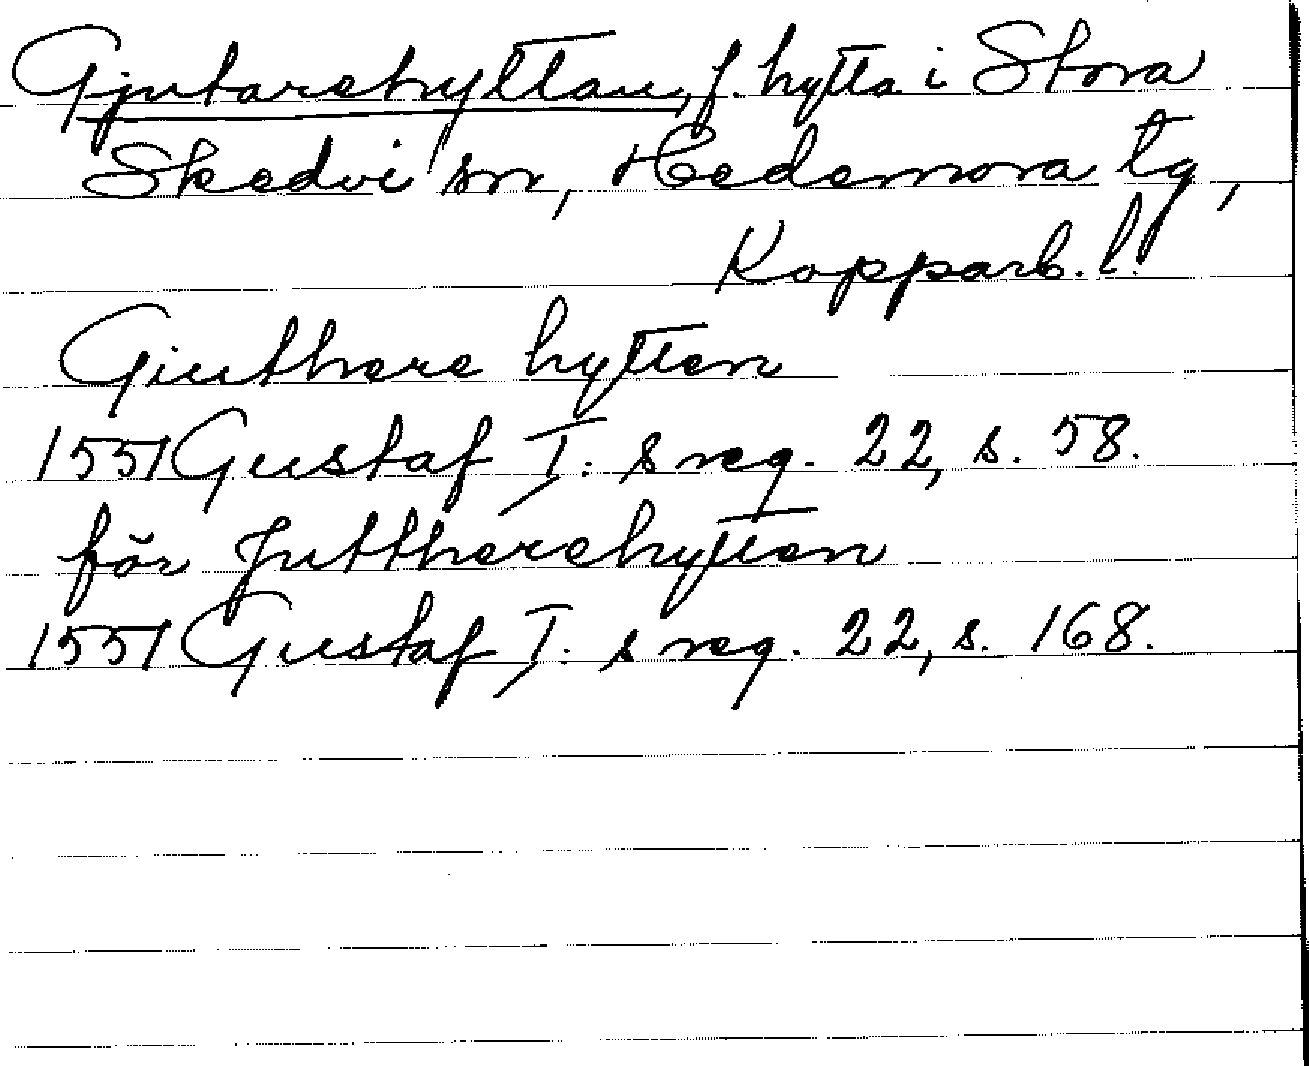 Gjutarehyttan, f. hytta i Stora
Skedvi sn, Hedemora tg,
Kopparb. l.
Giuthere hytten
1551 Gustaf I: s reg. 22, s. 58.
för Juttherehytten
1551 Gustaf I: s reg. 22, s. 168.